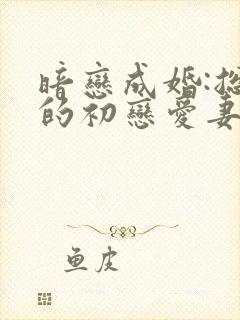 暗戀成婚:
的初戀愛妻
鱼皮